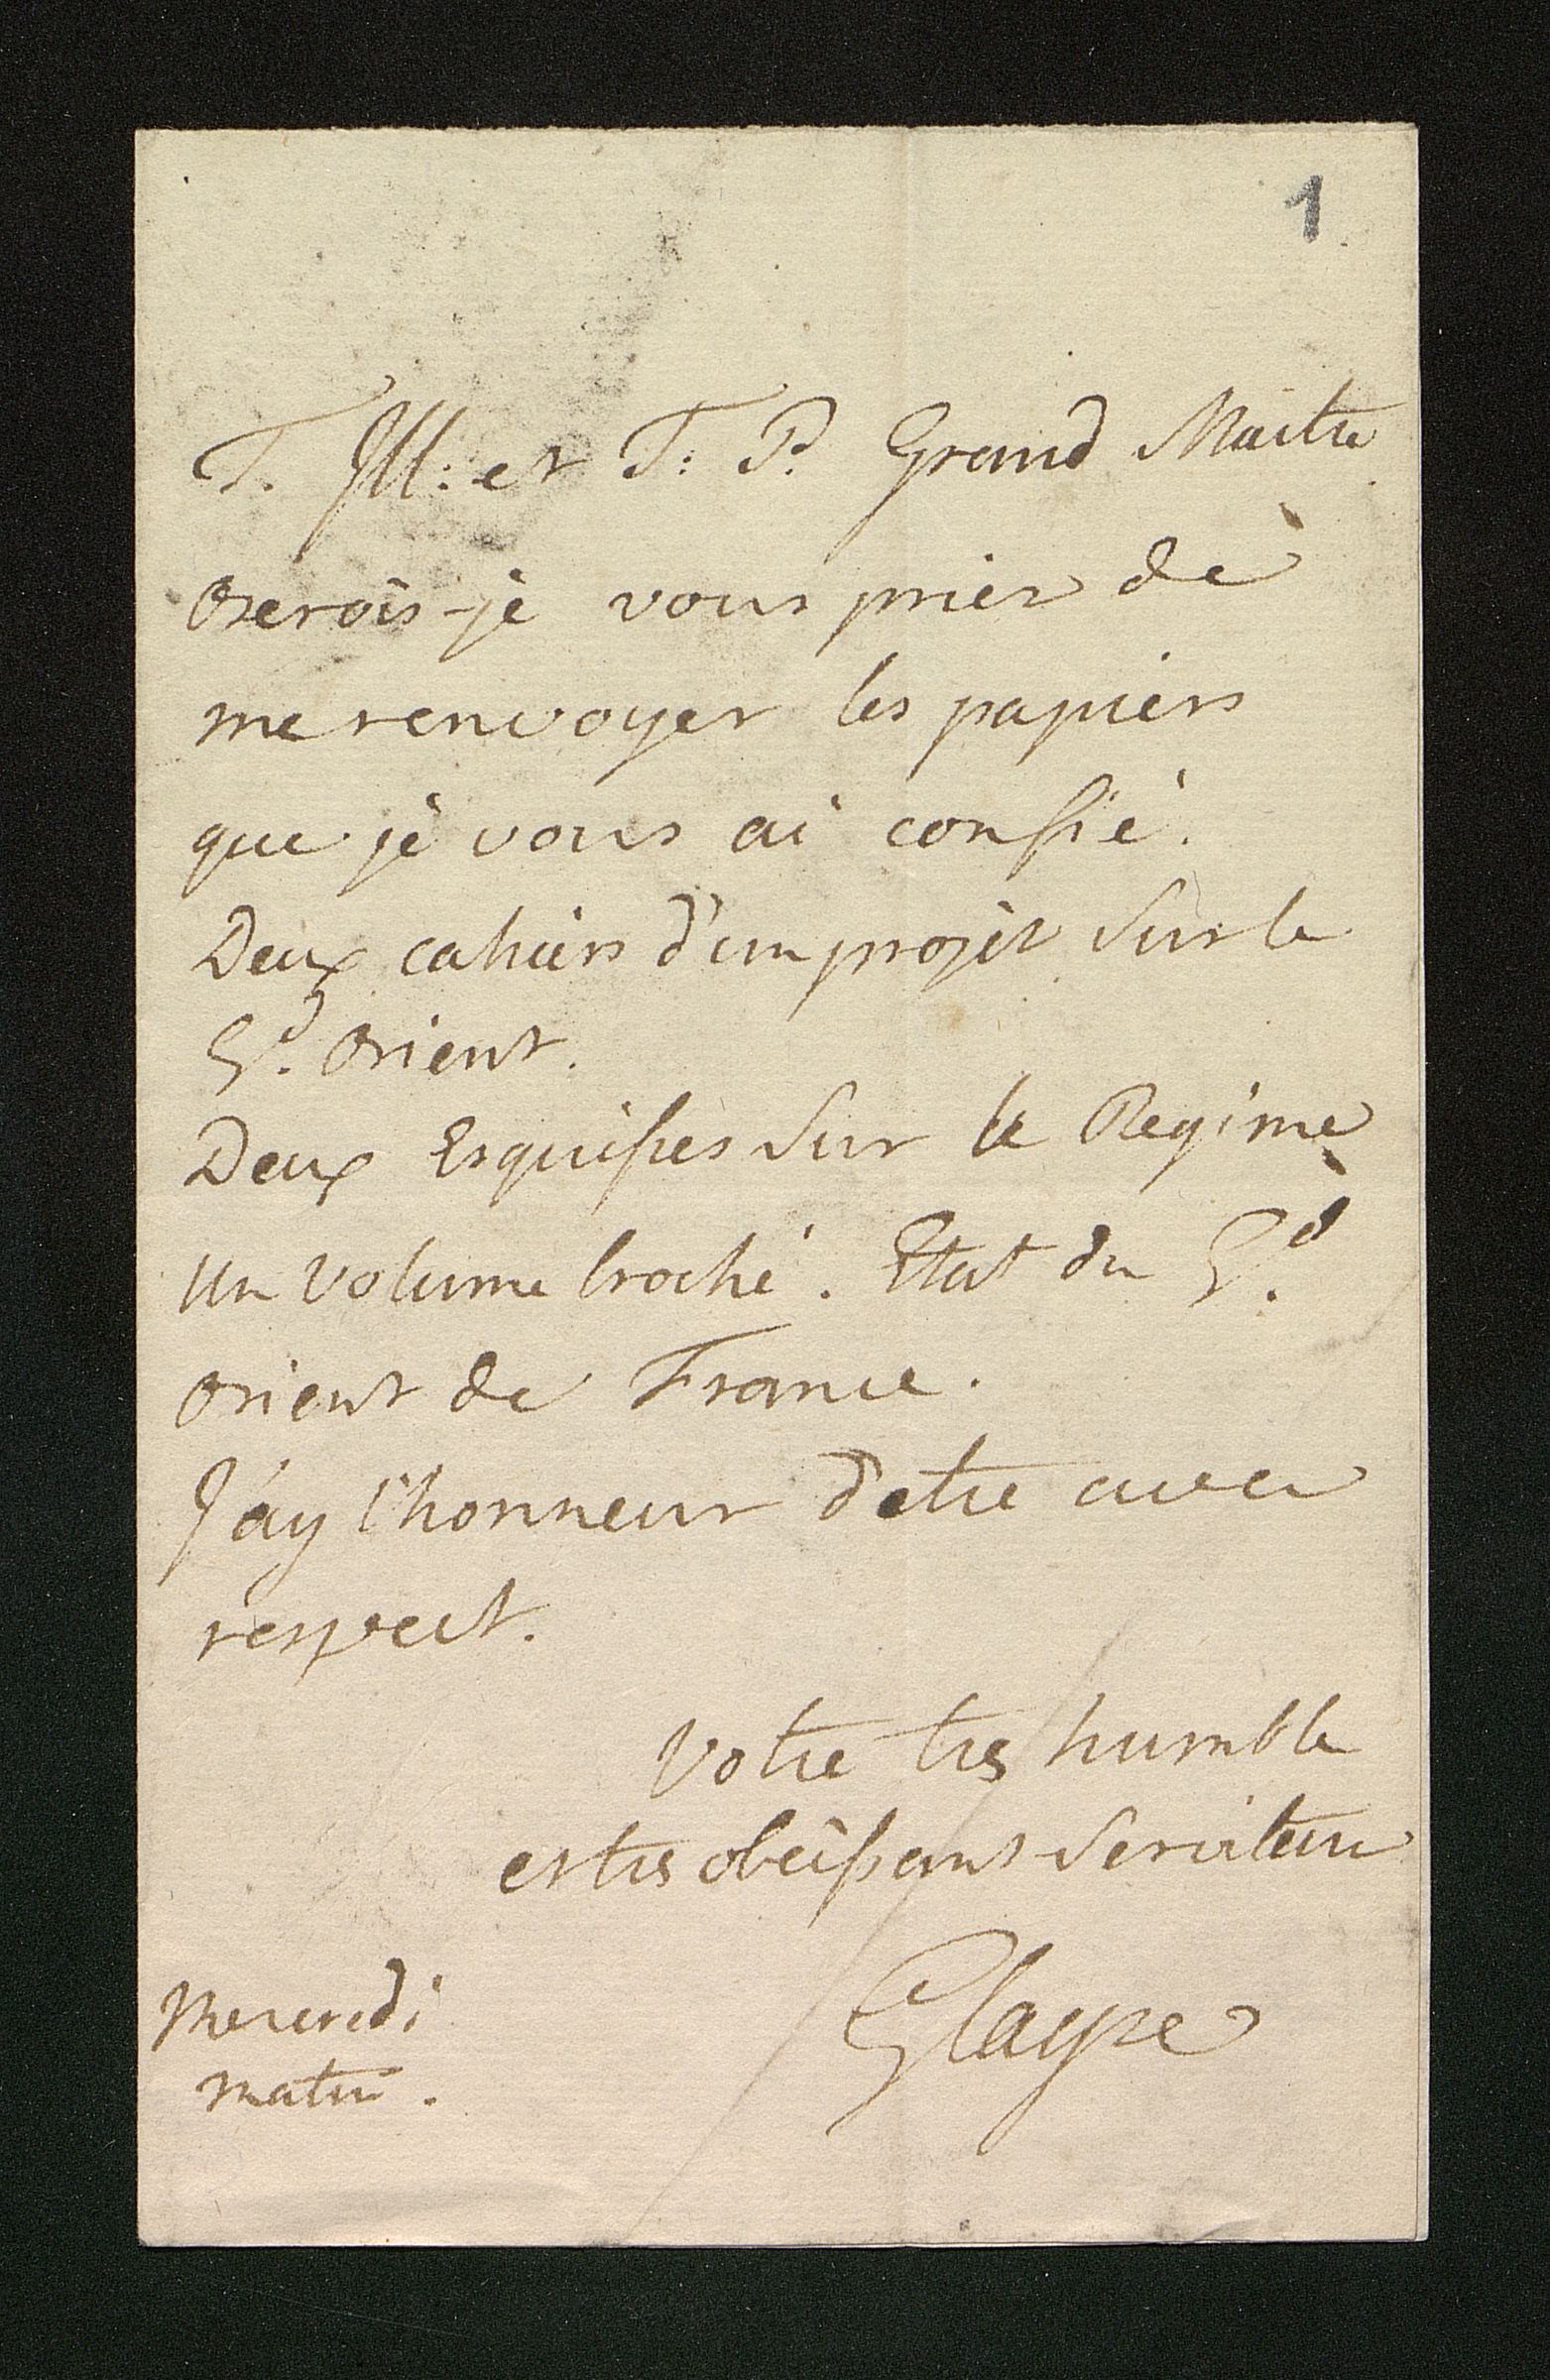 1
T. Ill: et T: P. Grand Maitre
Oserois-je vous prier de
me renvoyer les papiers
que je vous ai confié.
Deux cahiers d'un projet sur le
Gd. Orient.
Deux Esquisses sur le Regime
Un volume broché. Etat du Gd.
Orient de France.
J'ay l'honneur d'etre avec
respect.
Votre tres humble
et tres obeissant serviteur
Glayre
Mercredi
matin.